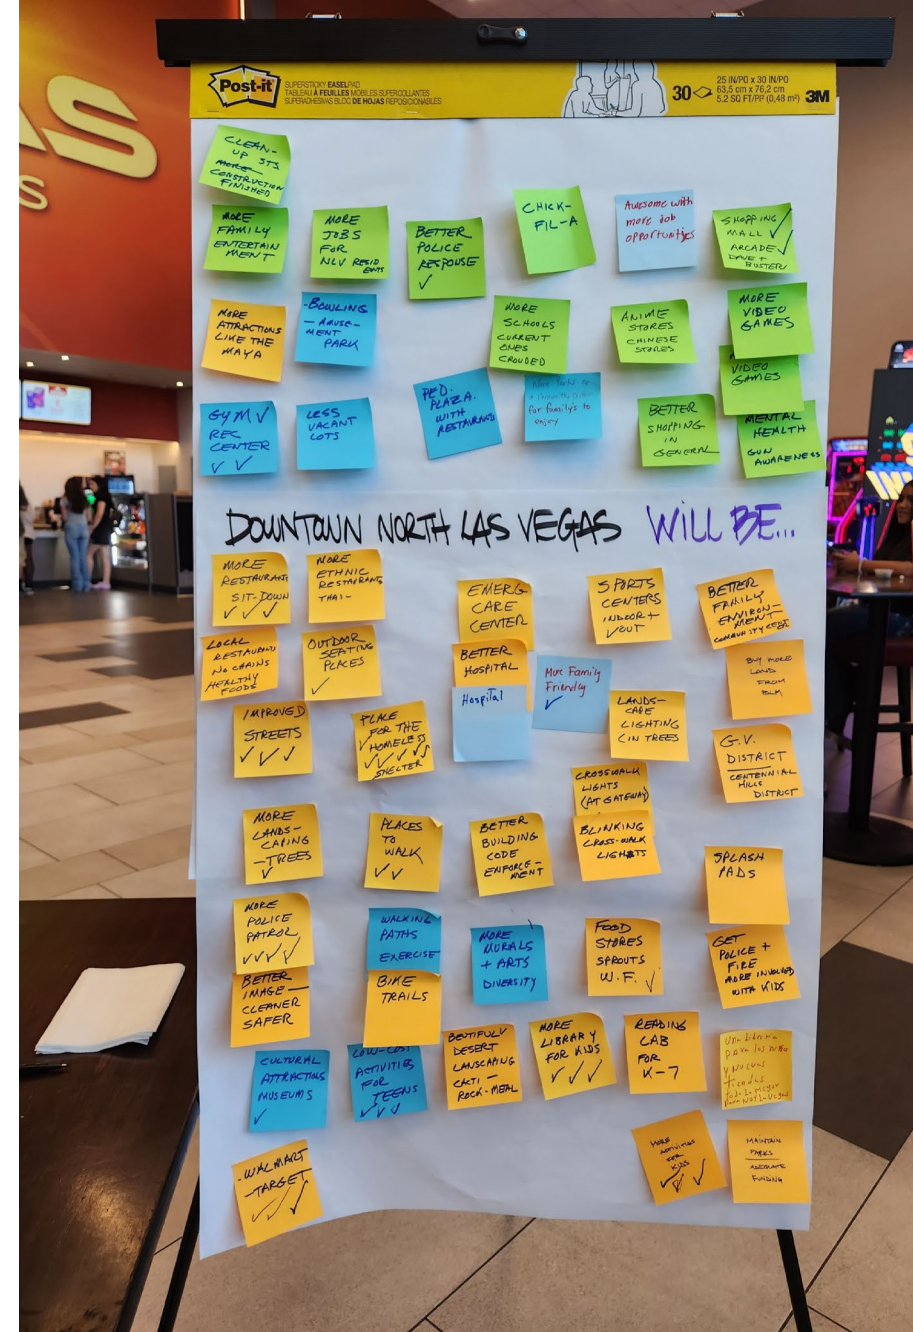 AS
S
Post-it
SUPERSTICKY EASELPAD
TABLEAU À FEUILLES MOBILES SUPERCOLLANTES
SUPERADHESIVAS BLOC DE HOJAS REPOSICIONABLES
30
25 IN/PO x 30 IN/PO
63,5 cm x 76,2 cm
5.2 SQ FT/PI² (0,48 m²)
3M
CLEAN-
UP STS.
MORE
CONSTRUCTION
FINISHED
MORE
FAMILY
ENTERTAIN
MENT
MORE
JOBS
FOR
NLV RESID
ENTS
BETTER
POLICE
RESPONSE
✓
CHICK-
FIL-A
Awesome with
more Job
opportunities
SHOPPING ✓
MALL
ARCADE ✓
DAVE +
BUSTERS
MORE
ATTRACTIONS
LIKE THE
MAYA
-BOWLING
- AMUSE-
MENT
PARK
MORE
SCHOOLS
CURRENT
ONES
CROUDED
ANIME
STORES
CHINESE
STORES
MORE
VIDEO
GAMES
VIDEO
GAMES
GYM ✓
REC
CENTER
✓ ✓
LESS
VACANT
LOTS
PED.
PLAZA
WITH
RESTAURANTS
for family's to
enjoy
BETTER
SHOPPING
IN
GENERAL
MENTAL
HEALTH
GUN AWARENESS
DOWNTOWN NORTH LAS VEGAS WILL BE...
MORE
RESTAURANTS
SIT-DOWN
✓ ✓ ✓
MORE
ETHNIC
RESTAURANTS
THAI-
EMERG
CARE
CENTER
SPORTS
CENTERS
INDOOR +
✓OUT
BETTER
FAMILY
ENVIRON-
MENT
LOCAL
RESTAURANTS
NO CHAINS
HEALTHY
FOODS
OUTDOOR
SEATING
PLACES
✓
BETTER
HOSPITAL
Hospital
More Family
Friendly
✓
BUY MORE
LAND
FROM
BLM
IMPROVED
STREETS
✓ ✓ ✓
PLACE
FOR THE
HOMELESS
✓ ✓ ✓ ✓ ✓
SHELTER
LANDS-
CAPE
LIGHTING
(IN TREES)
G.V.
DISTRICT
CENTENNIAL
HILLS
DISTRICT
CROSSWALK
LIGHTS
(AT GATEWAY)
MORE
LANDS-
CAPING
-TREES
✓
PLACES
TO
WALK
✓ ✓
BETTER
BUILDING
CODE
ENFORCE-
MENT
BLINKING
CROSS-WALK
LIGHTS
SPLASH
PADS
MORE
POLICE
PATROL
✓ ✓ ✓ ✓
WALKING
PATHS
EXERCISE
MORE
MURALS
+ ARTS
DIVERSITY
FOOD
STORES
SPROUTS
W.F. ✓
GET
POLICE +
FIRE
MORE INVOLVED
WITH KIDS
BETTER
IMAGE-
CLEANER
SAFER
BIKE
TRAILS
CULTURAL
ATTRACTIONS
MUSEUMS
✓
LOW-COST
ACTIVITIES
FOR
TEENS
✓ ✓ ✓
BEUTIFULY
DESERT
LANSCAPING
CACTI -
ROCK-METAL
MORE
LIBRARY
FOR KIDS
✓ ✓ ✓
READING
LAB
FOR
K-7
para los niños
y nuevas
tiendas
-WALMART
-TARGET
✓ ✓ ✓
MORE
ACTIVITIES
FOR
KIDS
✓ ✓ ✓
MAINTAIN
PARKS
ADEQUATE
FUNDING